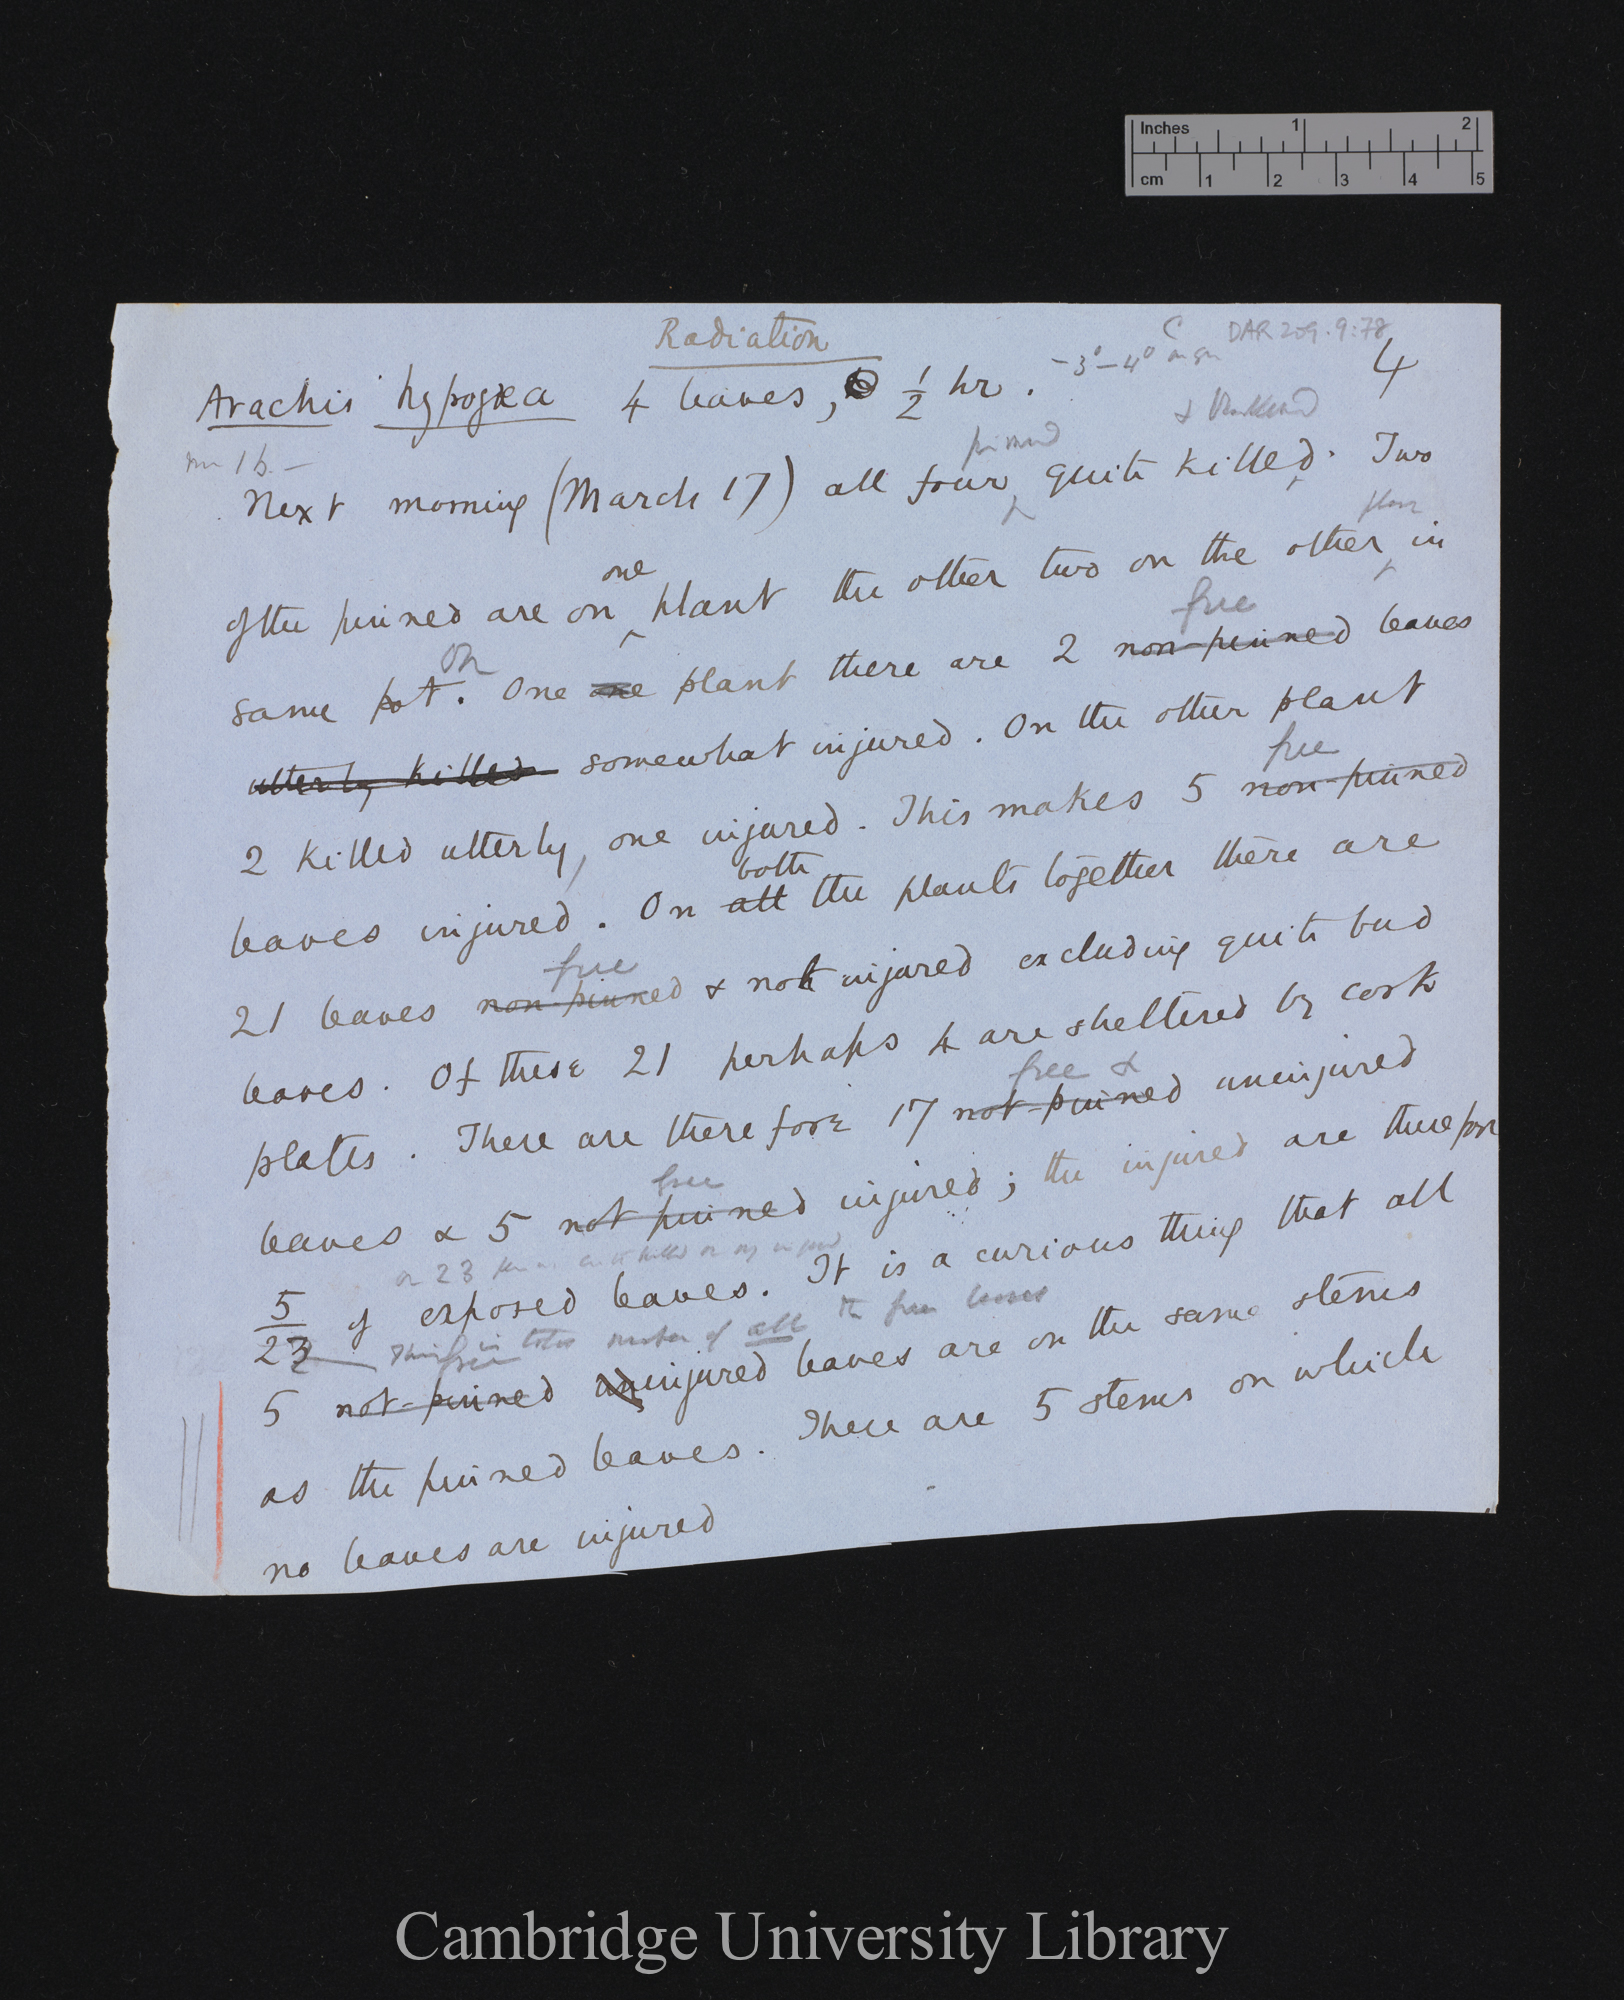 Inches 1 2
cm 1 2 3 4 5
Radiation
C DAR 209.9:78
Arachis hypogæa 4 leaves, ½ hr. -3°-4° 4
& blackened
pinned
Next morning (March 17) all four quite killed. Two
one plant
of the pinned are on plant the other two on the other in
On free
same pot. One one plant there are 2 non-pinned leaves
utterly killed somewhat injured. On the other plant
free
2 killed utterly, one injured. This makes 5 non-pinned
both
leaves injured. On all the plants together there are
free
21 leaves non-pinned & not injured excluding quite bud
leaves. Of these 21 perhaps 4 are sheltered by cork
free &
plates. There are therefore 17 not-pinned uninjured
free
leaves & 5 not pinned injured; the injured are therefore
or 23 killed or injured
5/22 of exposed leaves. It is a curious thing that all
in total number of all the free leaves
free
5 not-pinned uninjured leaves are on the same stems
as the pinned leaves. There are 5 stems on which
no leaves are injured
Cambridge University Library